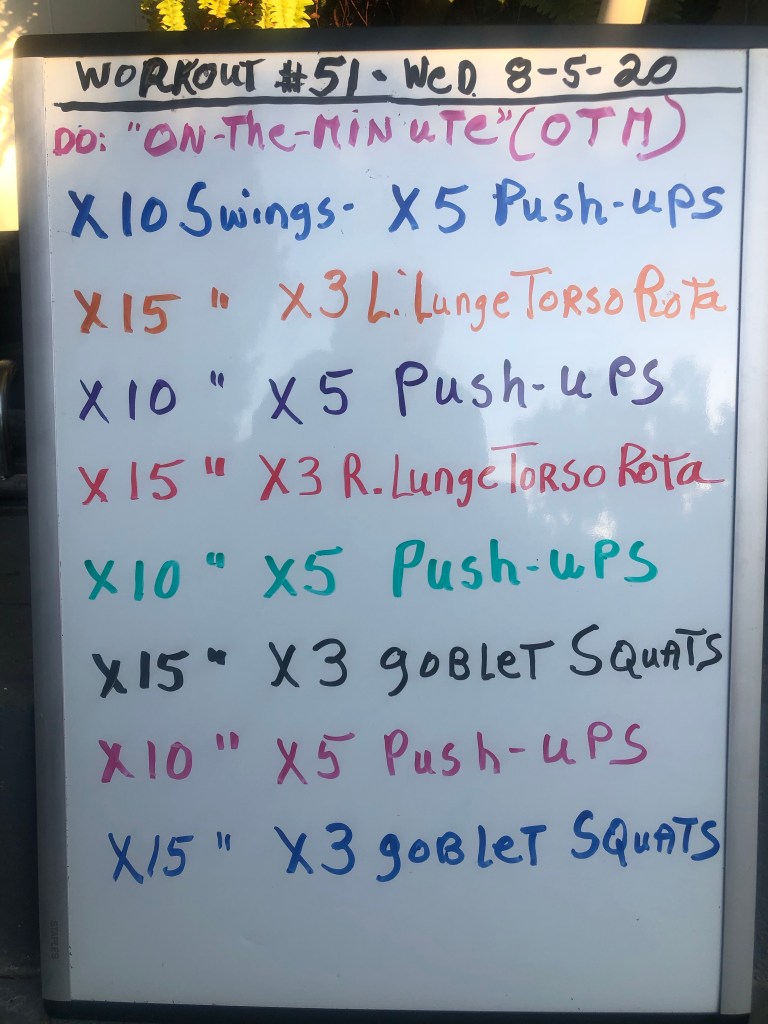 WORKOUT #51 - WeD. 8-5-20
DO: "ON-The-MiNuTE" (OTM)
X10 Swings - X5 Push-ups
X15 " X3 L. Lunge TORSO RoTa
X10 " X5 Push-uPS
X15 " X3 R. Lunge TORSO RoTa
X10 " X5 Push-uPS
X15 " X3 goBLeT SQuATS
X10 " X5 Push-uPS
X15 " X3 goBLeT SQuATS